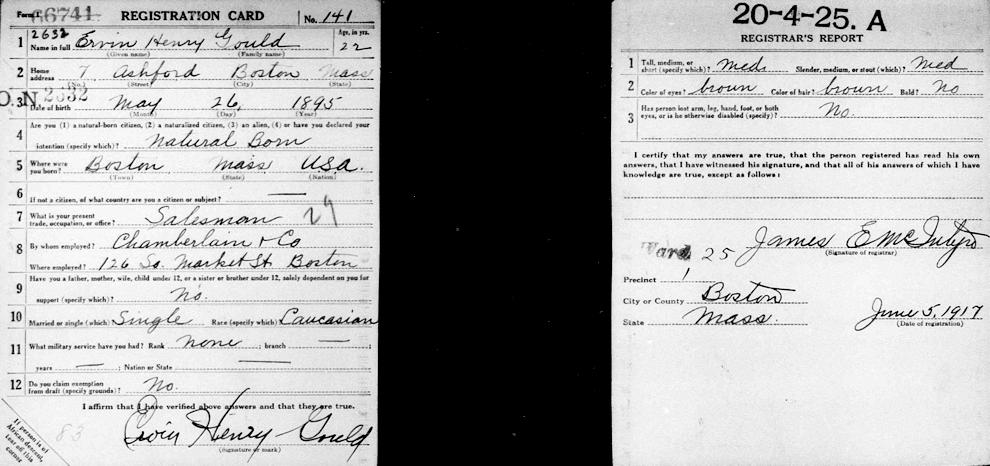 Form 1 66741. REGISTRATION CARD No. 141
2632
1 Name in full Ervin Henry Gould Age, in yrs. 22
(Given name) (Family name)
2 Home address 7 Ashford Boston Mass
(No.) (Street) (City) (State)
O.N 2632
3 Date of birth May 26, 1895
(Month) (Day) (Year)
4 Are you (1) a natural-born citizen, (2) a naturalized citizen, (3) an alien, (4) or have you declared your
intention (specify which)? Natural Born
5 Where were you born? Boston Mass USA.
(Town) (State) (Nation)
6 If not a citizen, of what country are you a citizen or subject? —
7 What is your present trade, occupation, or office? Salesman 29
8 By whom employed? Chamberlain & Co
Where employed? 126 So. Market St Boston
9 Have you a father, mother, wife, child under 12, or a sister or brother under 12, solely dependent on you for
support (specify which)? No.
10 Married or single (which) Single Race (specify which) Caucasian
11 What military service have you had? Rank None ; branch — ;
years — ; Nation or State
12 Do you claim exemption from draft (specify grounds)? No.
I affirm that I have verified above answers and that they are true.
83
Ervin Henry Gould
(Signature or mark)
If person is of
African descent,
tear off this
corner
20-4-25. A
REGISTRAR'S REPORT
1 Tall, medium, or short (specify which)? Med. Slender, medium, or stout (which)? Med
2 Color of eyes? brown Color of hair? brown Bald? No
3 Has person lost arm, leg, hand, foot, or both
eyes, or is he otherwise disabled (specify)? No.
I certify that my answers are true, that the person registered has read his own
answers, that I have witnessed his signature, and that all of his answers of which I
have knowledge are true, except as follows:
Ward 25 James E McIntyre
(Signature of registrar)
Precinct 1
City or County Boston
State Mass. June 5, 1917
(Date of registration)